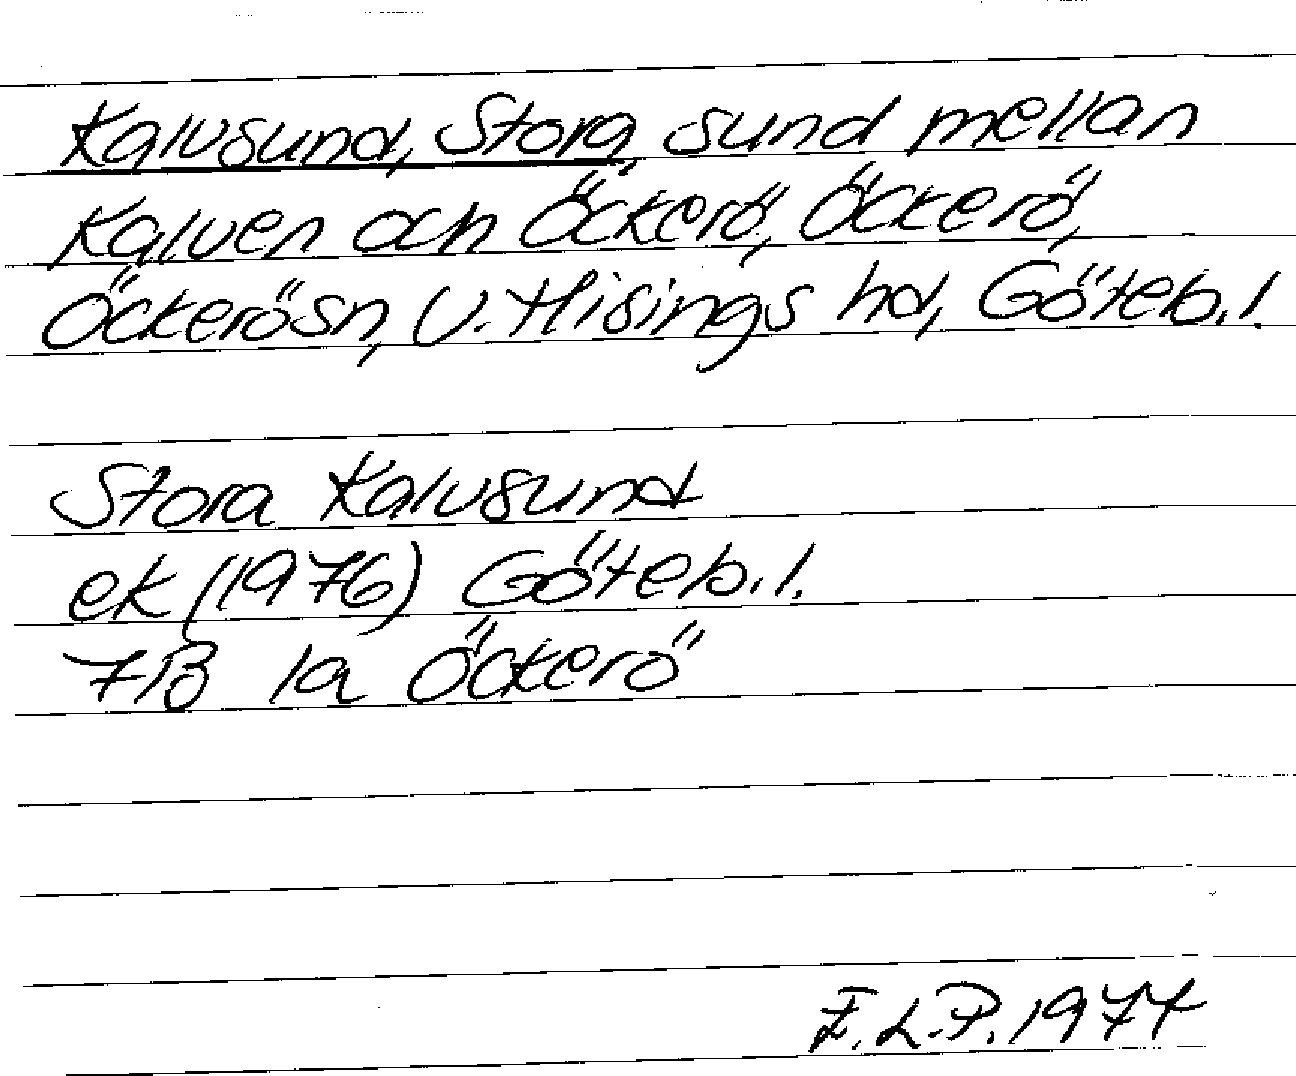 Kalvsund, Stora, sund mellan
Kalven och Öckerö, Öckerö,
Öckerö sn, V. Hisings hd, Göteb.l.
Stora Kalvsund
ek (1976) Göteb.l.
7B 1a Öckerö
F.L.P. 1977